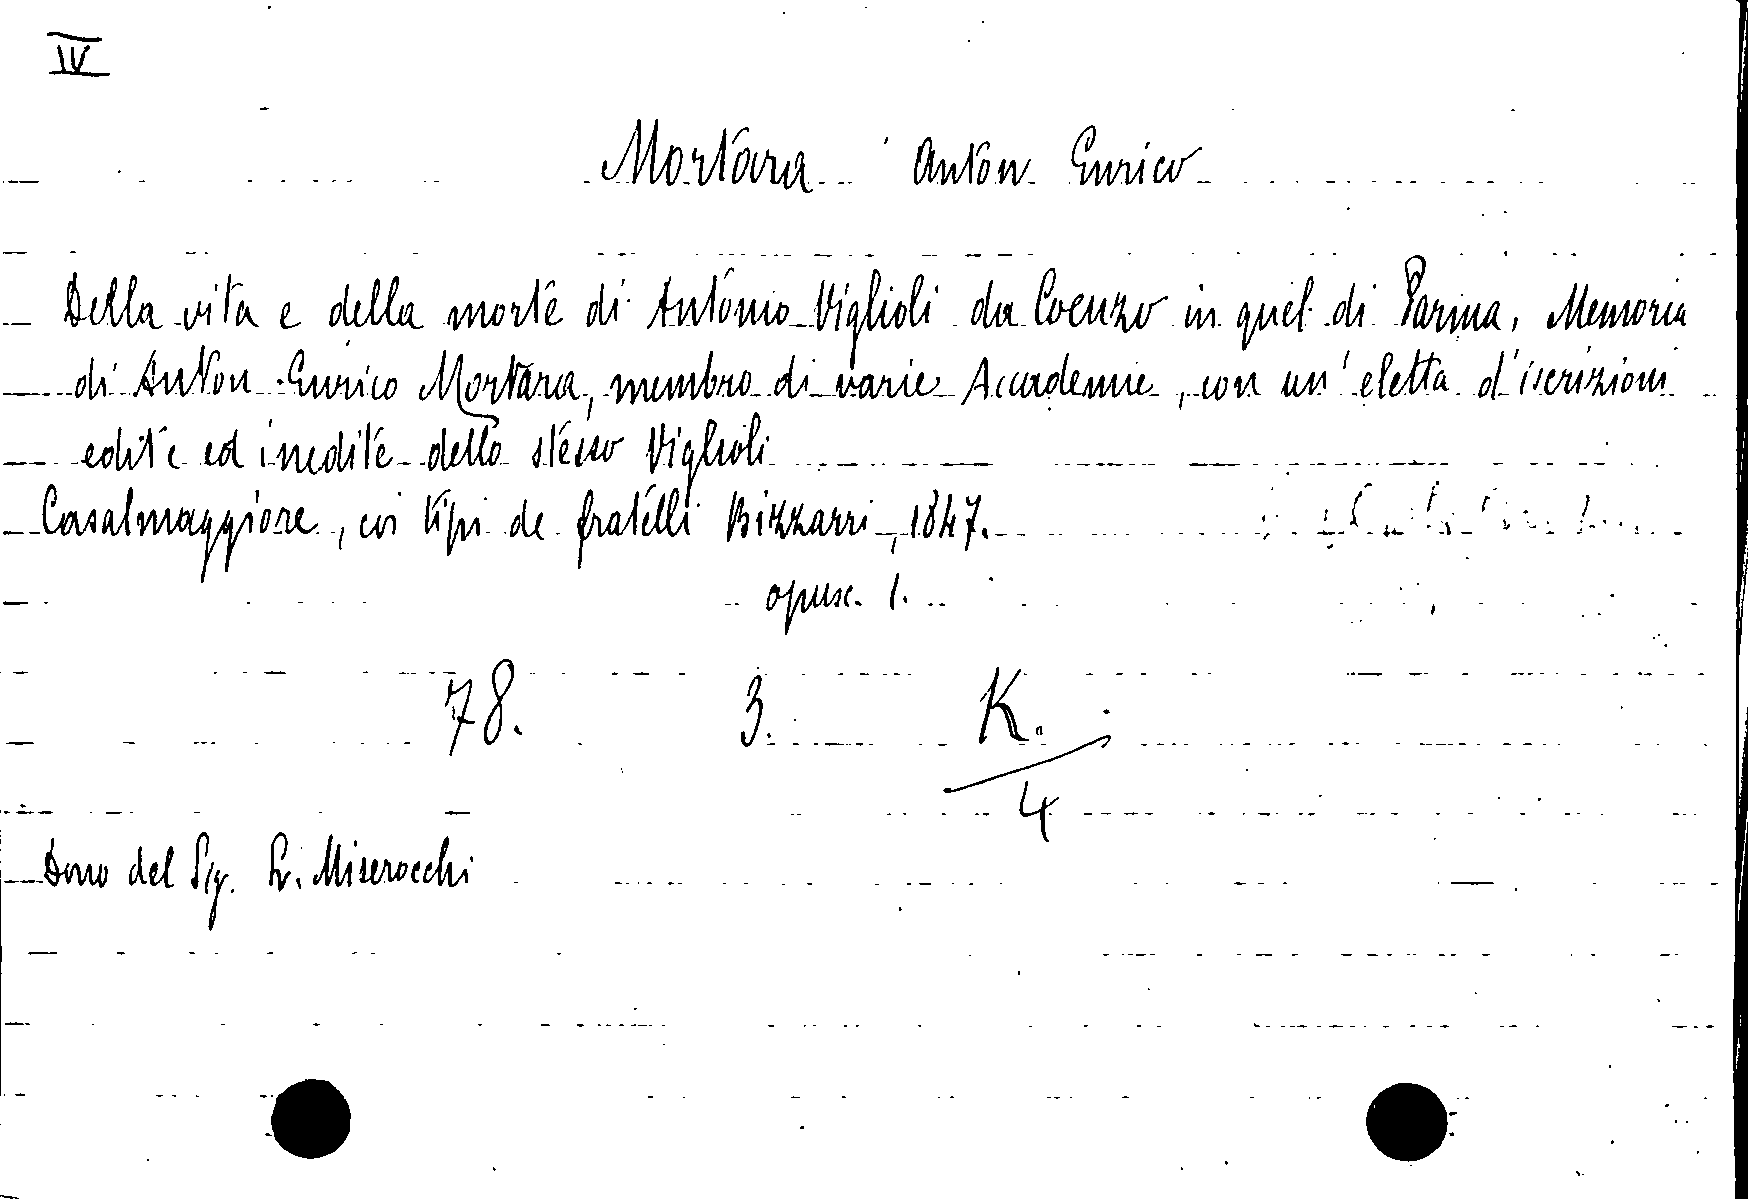 IV
Mortara Anton Enrico
Della vita e della morte di Antonio Viglioli da Coenzo in quel di Parma, Memoria
di Anton Enrico Mortara, membro di varie Accademie, con un'eletta d'iscrizioni
edite ed inedite dello stesso Viglioli
Casalmaggiore, coi tipi de fratelli Bizzarri, 1847.
opusc. 1.
78. 3. K.
4
Dono del Sig. Miserocchi